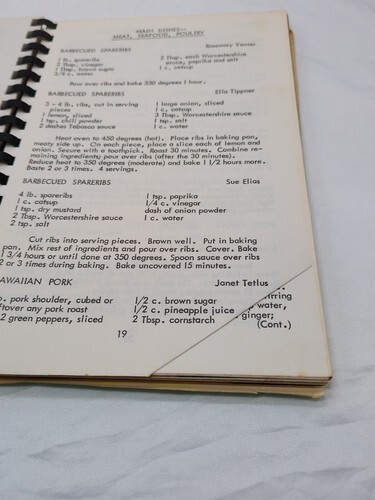 MAIN DISHES--
MEAT, SEAFOOD, POULTRY
BARBECUED SPARERIBS Rosemary
1 lb. spareribs 2 Tbsp. each Worcestershire
2 Tbsp. vinegar sauce, paprika and salt
1 Tbsp. brown sugar 1 c. catsup
3/4 c. water
Pour over ribs and bake 350 degrees 1 hour.
BARBECUED SPARERIBS Ella Tippner
3 - 4 lb. ribs, cut in serving 1 large onion, sliced
pieces 1 c. catsup
1 lemon, sliced 3 Tbsp. Worcestershire sauce
1 tsp. chili powder 1 tsp. salt
2 dashes Tabasco sauce 1 c. water
Heat oven to 450 degrees (hot). Place ribs in baking pan,
meaty side up. On each piece, place a slice each of lemon and
onion. Secure with a toothpick. Roast 30 minutes. Combine re-
maining ingredients; pour over ribs (after the 30 minutes).
Reduce heat to 350 degrees (moderate) and bake 1 1/2 hours more.
Baste 2 or 3 times. 4 servings.
BARBECUED SPARERIBS Sue Elias
4 lb. spareribs 1 tsp. paprika
1 c. catsup 1/4 c. vinegar
1 tsp. dry mustard dash of onion powder
2 Tbsp. Worcestershire sauce 1 c. water
2 tsp. salt
Cut ribs into serving pieces. Brown well. Put in baking
pan. Mix rest of ingredients and pour over ribs. Cover. Bake
1 3/4 hours or until done at 350 degrees. Spoon sauce over ribs
2 or 3 times during baking. Bake uncovered 15 minutes.
AWAIIAN PORK Janet Tetlus
b. pork shoulder, cubed or 1/2 c. brown sugar
ftover any pork roast 1/2 c. pineapple juice water,
2 green peppers, sliced 2 Tbsp. cornstarch ginger;
(Cont.)
19